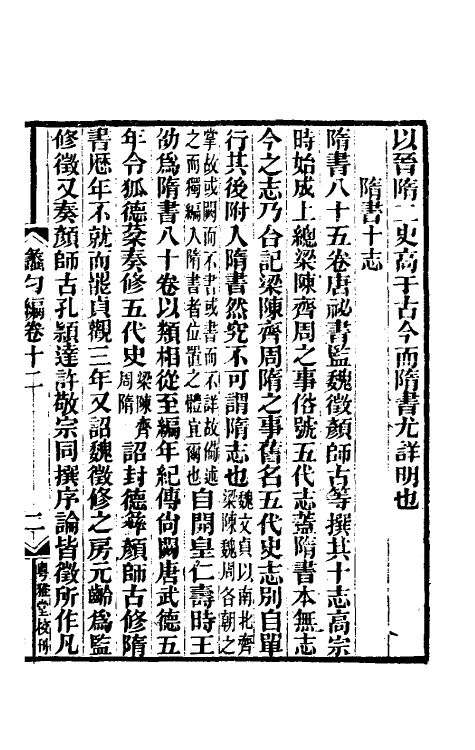 以晉隋二史高于古今而隋書尤詳明也
隋書十志
隋書八十五卷唐祕書監魏徵顏師古等撰其十志高宗
時始成上總梁陳齊周之事俗號五代志蓋隋書本無志
今之志乃合記梁陳齊周隋之事舊名五代史志別自單
行其後附入隋書然究不可謂隋志也魏文貞以南北齊梁陳魏周各朝之
掌故或闕而不書或書而不詳故備述之而獨編入隋書者位置之體宜爾也自開皇仁壽時王
劭為隋書八十卷以類相從至編年紀傳尚闕唐武德五
年令狐德棻奏修五代史梁陳齊周隋詔封德彝顏師古修隋
書歷年不就而罷貞觀三年又詔魏徵修之房元齡為監
修徵又奏顏師古孔穎達許敬宗同撰序論皆徵所作凡
蠡勺編卷十二 二 粤雅堂校刊